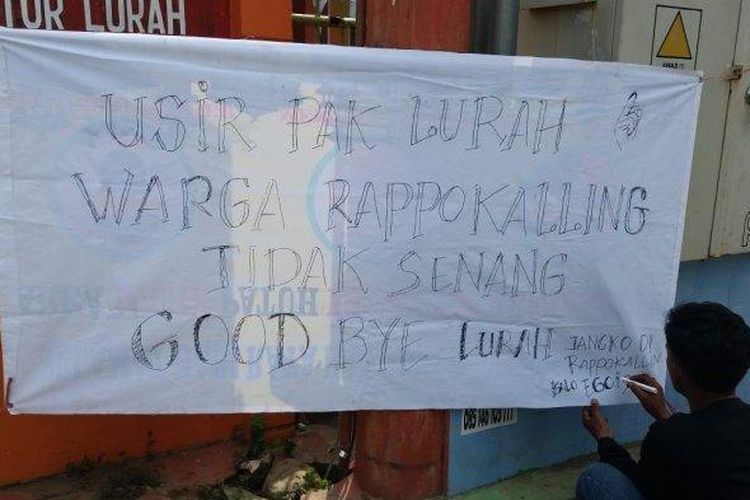 TOR LURAH
USiR PAK LURAH
WARGA RAPPOKALLING
TIDAK SENANG
GOOD BYE LURAH
JANGKO DI
RAPPOKALLIN
KALO EGOI